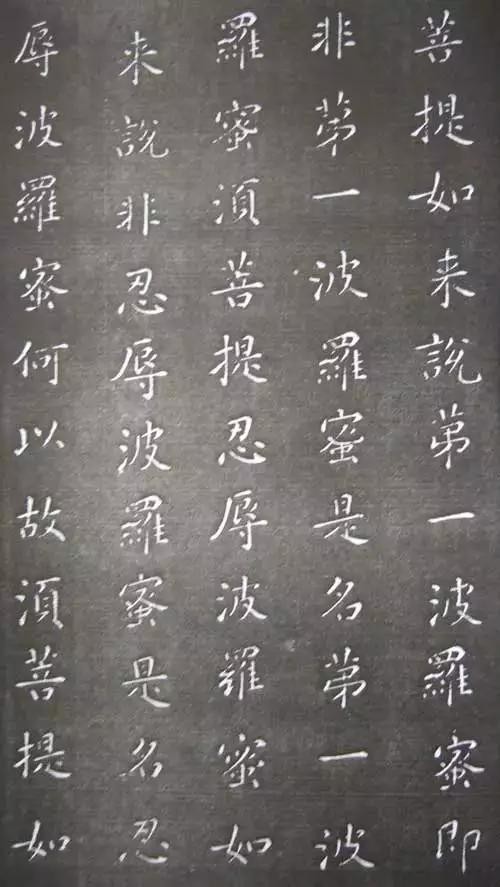 菩提如来說苐一波羅蜜即
非苐一波羅蜜是名苐一波
羅蜜湏菩提忍辱波羅蜜如
来說非忍辱波羅蜜是名忍
辱波羅蜜何以故湏菩提如